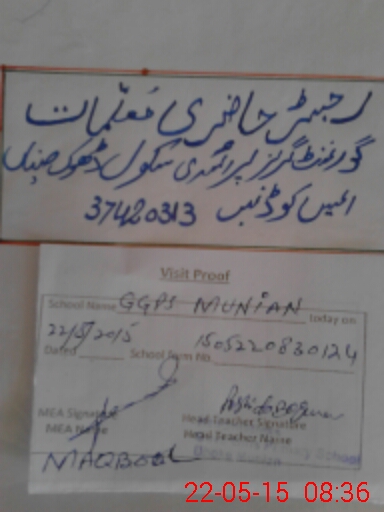 رجسٹر حاضری معلّمات
گورنمنٹ گرلز پرائمری سکول ڈھوک منیاں
ایمس کوڈ نمبر 37420313
Visit Proof
School Name GGPS MUNIAN today on
22/5/2015 1505220830124
Dated School form No
MEA Signature Head Teacher Signature
MEA Name Head Teacher Name
MAQBOOL School
22-05-15 08:36